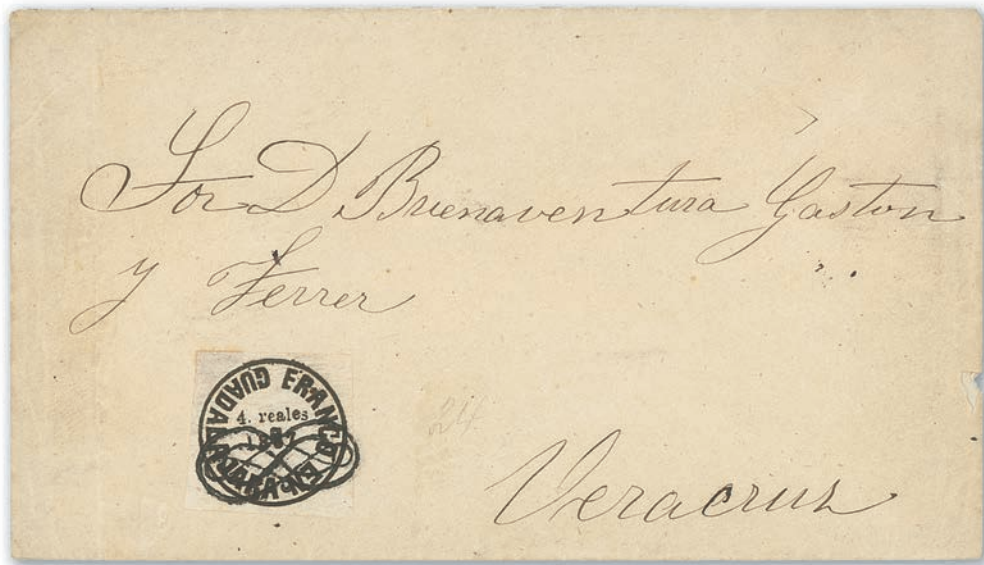 Sor D Buenaventura Gaston
y Ferrer
FRANCO EN GUADALAJARA
4. reales
24
Veracruz